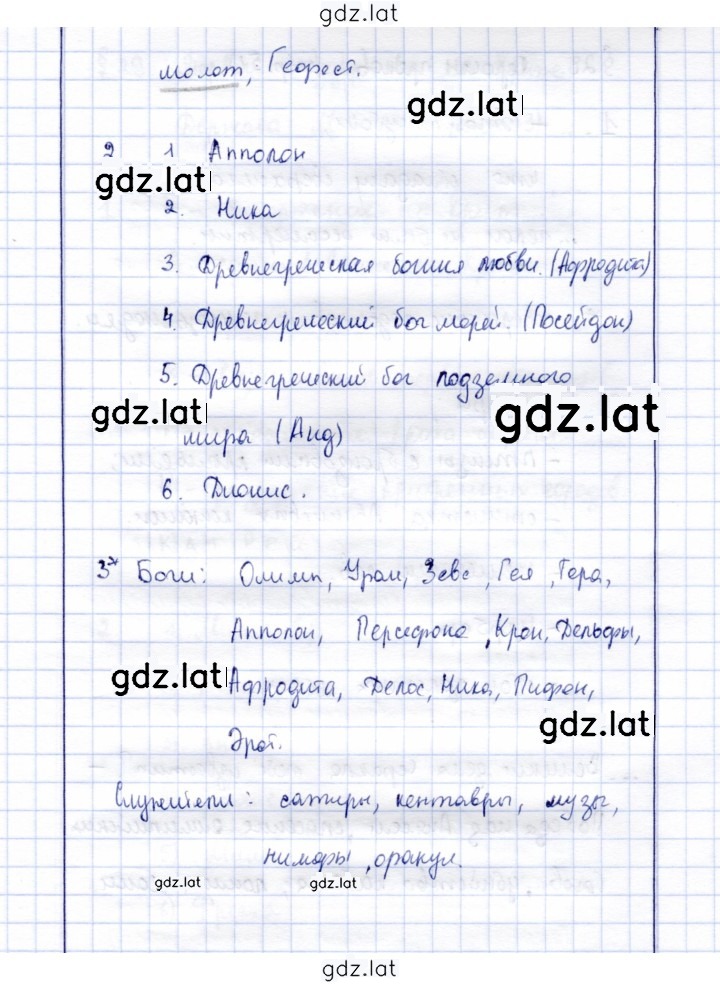 gdz.lat
молот, Гефест.
gdz.lat
2 1 Апполон
gdz.lat
2. Ника
3. Древнегреческая богиня любви. (Афродита)
4. Древнегреческий бог морей. (Посейдон)
5. Древнегреческий бог подземного
gdz.lat
gdz.lat
мира (Аид)
6. Дионис.
3* Боги: Олимп, Уран, Зевс, Гея, Гера,
Апполон, Персефона, Крон, Дельфы,
gdz.lat
Афродита, Делос, Ника, Пифон,
gdz.lat
Эрот.
Служители: сатиры, кентавры, музы,
нимфы, оракул.
gdz.lat gdz.lat
gdz.lat